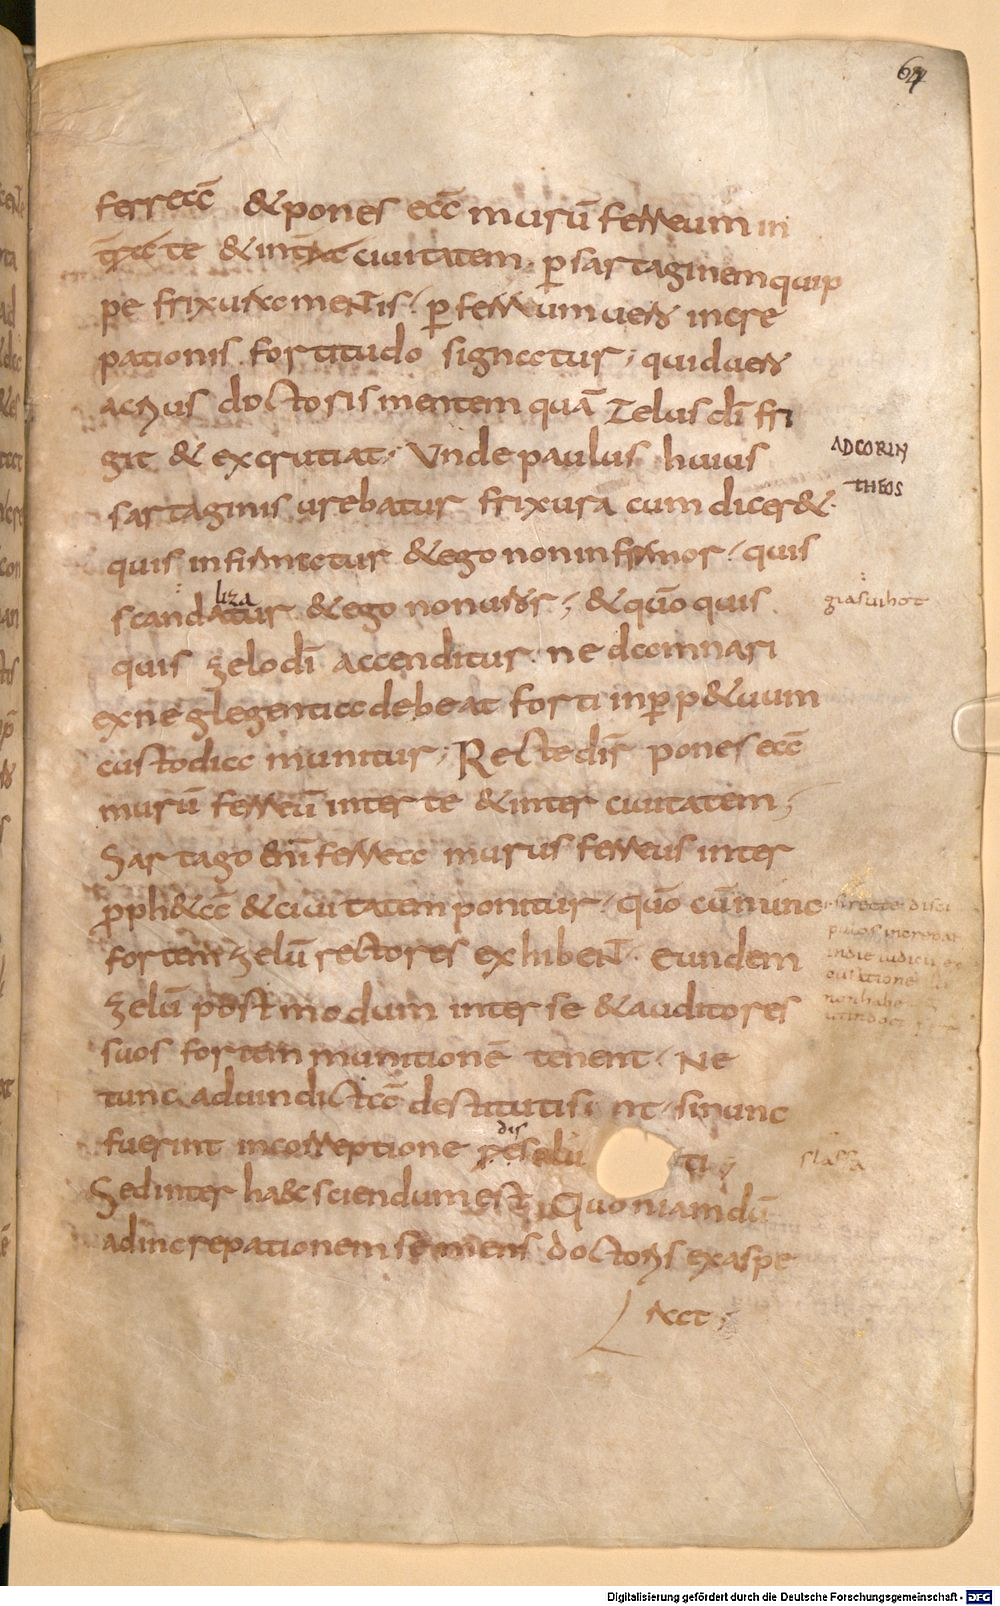 64
ferrea & pones eā murū ferreum in
te & int ciuitatem . p̱ sartaginem quip
pe frixura mentis . p̱ ferrum uero incre
pationis fortitudo signatur ; quid uero
acrius doctoris mentem quā Zelus dī fri
git & excrutiat . Vnde paulus huius
AD CORIN
THEOS
sartaginis urebatur frixura cum dicer&.
quis infirmatur & ego non infirmor . quis
scandalizatur & ego non uror ; & quō quis
quis zelo dī accenditur . ne damnari
ex neglegentia debeat forti in p̱p&uum
custodia munitur ; Recte dī pones eā
murū ferreū inter te & inter ciuitatem ;
Sartago enī ferrea murus ferreus inter
proph&ā & ciuitatem ponitur . quō cū nunc
fortem zelū rectores exhibent . eundem
zelū postmodum inter se & auditores
suos fortem munitionē tenent . Ne
tunc ad uindictā destituti sint . si nunc
fuerint in correptione dissoluti ;
Sed inter haec sciendum est . Quoniam dū
ad increpationem se mens doctoris exaspe
rat ;